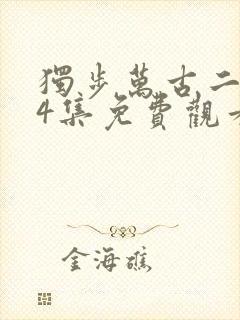 獨步萬古二
4集免費觀
金海礁